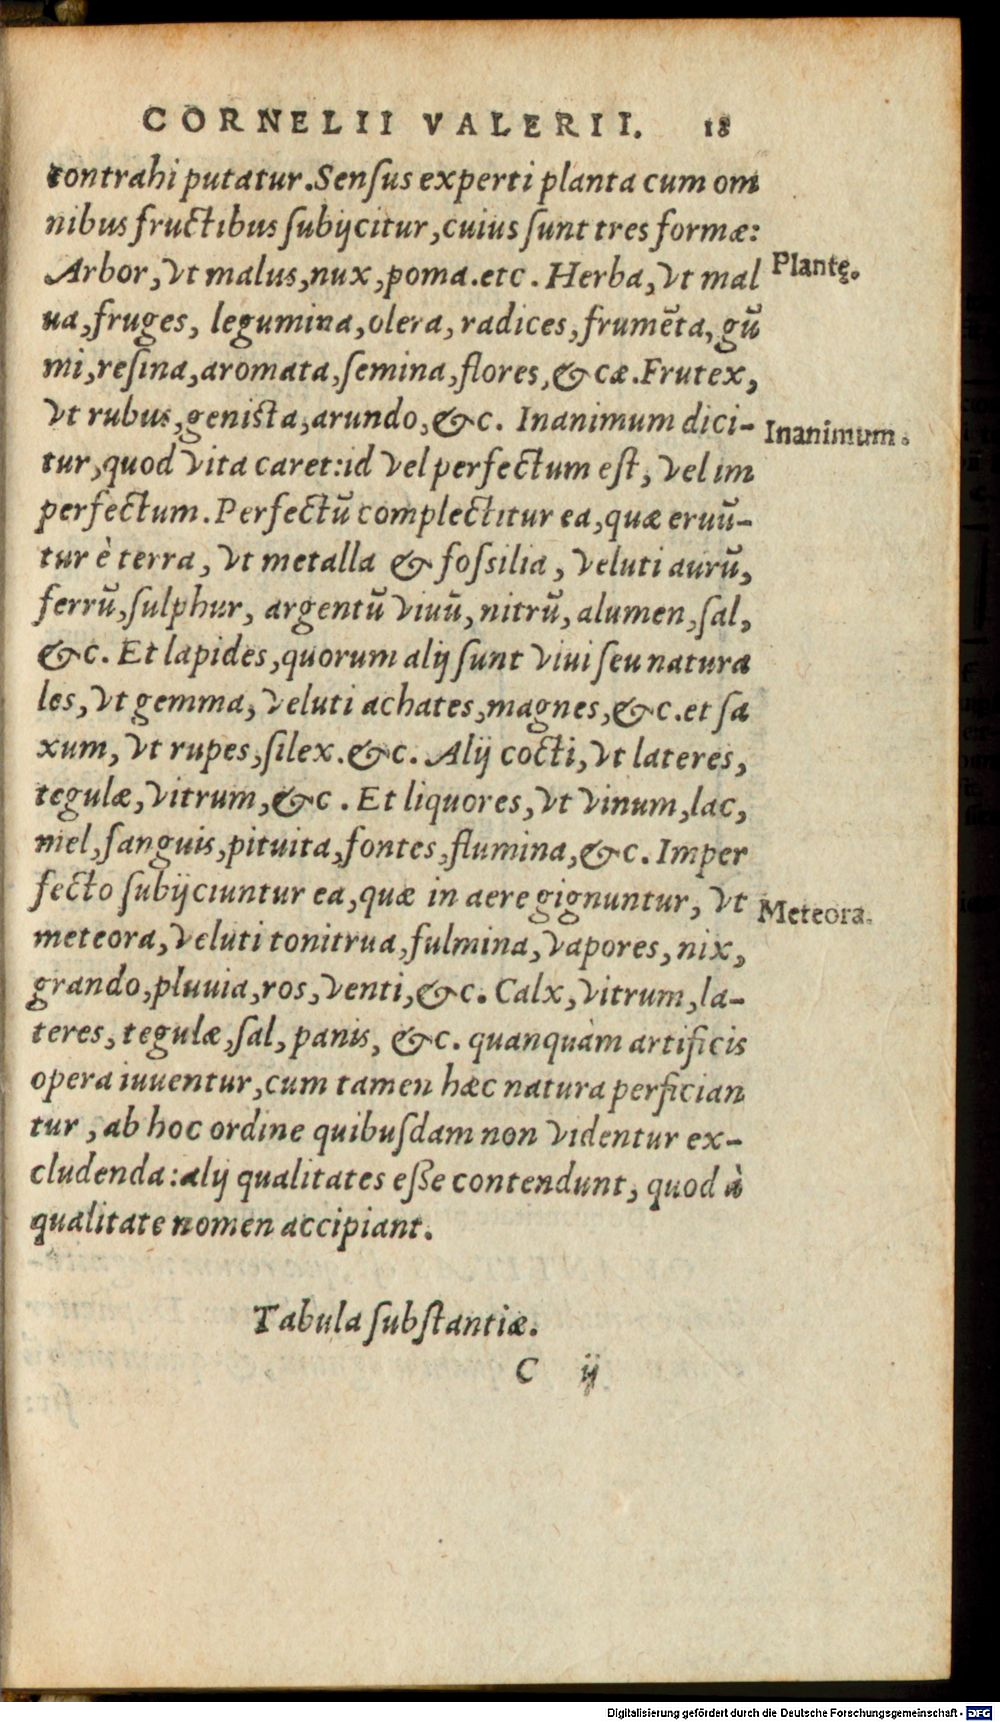 CORNELII VALERII. 18
contrahi putatur. Senſus experti planta cum om
nibus fructibus ſubijcitur, cuius ſunt tres formæ:
Arbor, vt malus, nux, poma. etc. Herba, vt mal
Plantę.
ua, fruges, legumina, olera, radices, frumēta, gū
mi, reſina, aromata, ſemina, flores, & cæ. Frutex,
vt rubus, geniſta, arundo, &c. Inanimum dici-
Inanimum.
tur, quod vita caret: id vel perfectum eſt, vel im
perfectum. Perfectū complectitur ea, quæ eruū-
tur è terra, vt metalla & foſsilia, veluti aurū,
ferrū, ſulphur, argentū viuū, nitrū, alumen, ſal,
&c. Et lapides, quorum alij ſunt viui ſeu natura
les, vt gemma, veluti achates, magnes, &c. et ſa
xum, vt rupes, ſilex. &c. Alij cocti, vt lateres,
tegulæ, vitrum, &c. Et liquores, vt vinum, lac,
mel, ſanguis, pituita, fontes, flumina, &c. Imper
fecto ſubijciuntur ea, quæ in aere gignuntur, vt
Meteora.
meteora, veluti tonitrua, fulmina, vapores, nix,
grando, pluuia, ros, venti, &c. Calx, vitrum, la-
teres, tegulæ, ſal, panis, &c. quanquàm artificis
opera iuuentur, cum tamen hæc natura perfician
tur, ab hoc ordine quibuſdam non videntur ex-
cludenda: alij qualitates eſſe contendunt, quod à
qualitate nomen accipiant.
Tabula ſubſtantiæ.
C ij
Digitalisierung gefördert durch die Deutsche Forschungsgemeinschaft - DFG